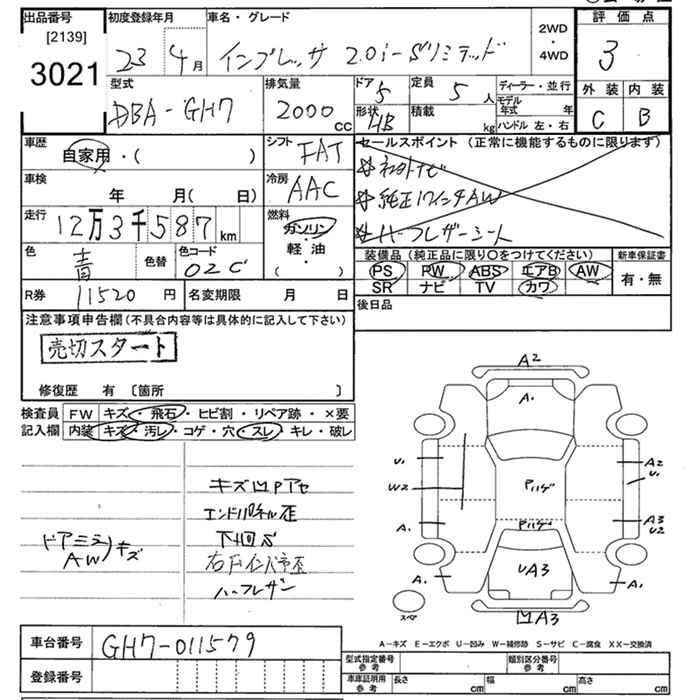 出品番号 初度登録年月 車名・グレード 2WD・4WD 評価点
[2139]
3021 23 4月 インプレッサ 2.0i-Sリミテッド 3
型式 排気量 ドア 定員 ディーラー・並行 外装 内装
DBA-GH7 2000cc 5 5人 モデル年式 年 C B
形状 積載
HB kg ハンドル 左・右
車歴 シフト セールスポイント (正常に機能するものに限ります)
自家用・( ) FAT
車検 冷房 純正17インチAW
年 月( 日) AAC ハーフレザーシート
走行 燃料
12万3千587km ガソリン・軽油・( )
色 色替 色コード 装備品 (純正品に限り○をつけてください) 新車保証書
青 02C PS PW ABS エアB AW 有・無
SR ナビ TV カワ
R券 11520円 名変期限 月 日 後日品
注意事項申告欄(不具合内容等は具体的に記入して下さい)
売切スタート
修復歴 有 〔箇所 〕
検査員 FW キズ・飛石・ヒビ割・リペア跡・×要
記入欄 内装 キズ・汚レ・コゲ・穴・スレ・キレ・破レ
キズ凹Pアセ
エンドパネル歪
ドアミラー キズ
AW
下回S
ハーフレザー
A2
A.
U. A2
U.
W2 Pハゲ
A. Pハゲ A3
U2
A. UA3 A.
スペア 凹A3
A-キズ E-エクボ U-凹み W-補修跡 S-サビ C-腐食 XX-交換済
車台番号 GH7-011579
型式指定番号 参考 類別区分番号 参考
登録番号 車庫証明用 参考 長さ cm 幅 cm 高さ cm